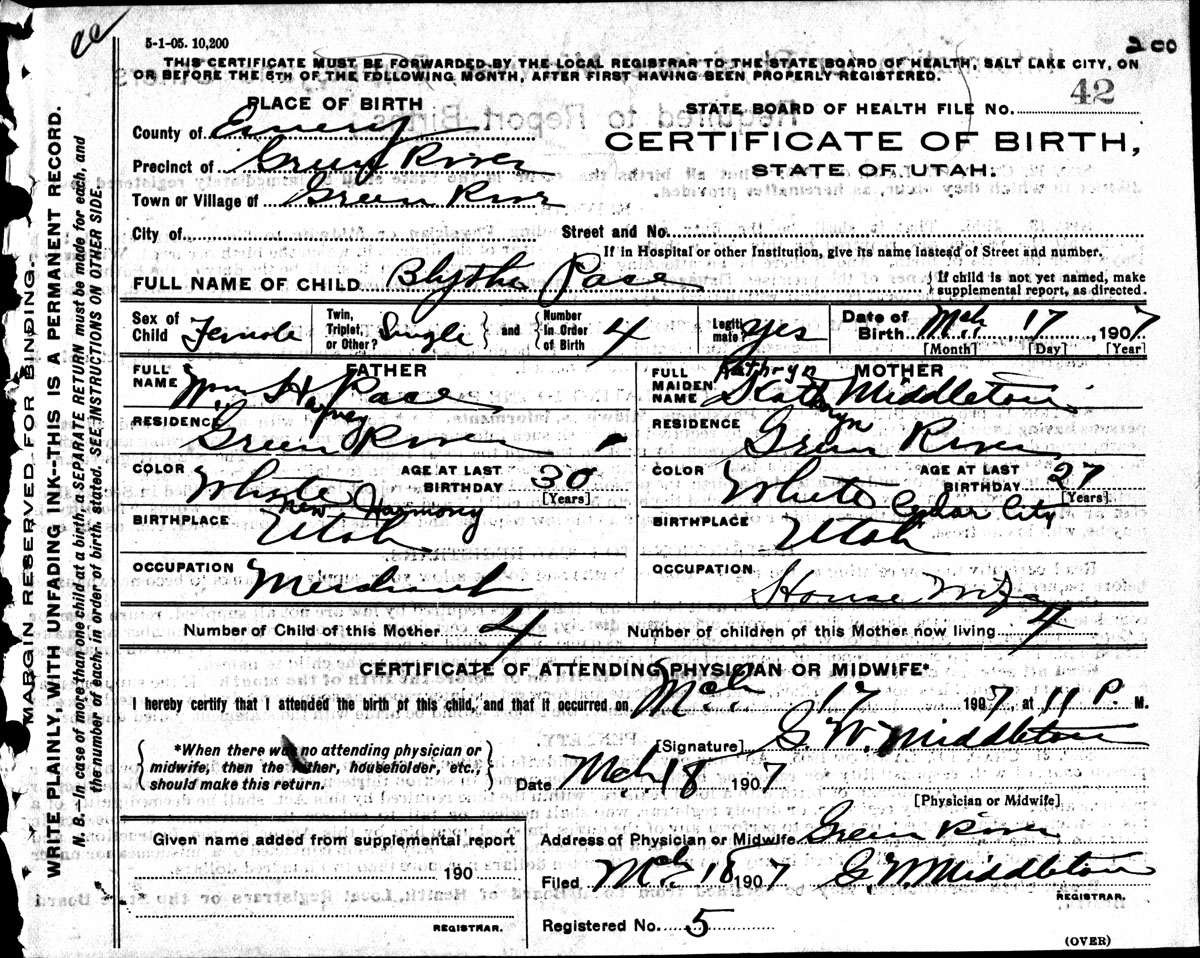 5-1-05. 10,200
200
THIS CERTIFICATE MUST BE FORWARDED BY THE LOCAL REGISTRAR TO THE STATE BOARD OF HEALTH, SALT LAKE CITY, ON
OR BEFORE THE 5TH OF THE FOLLOWING MONTH, AFTER FIRST HAVING BEEN PROPERLY REGISTERED.
PLACE OF BIRTH
STATE BOARD OF HEALTH FILE NO. 42
County of Emery
CERTIFICATE OF BIRTH,
Precinct of Green River
STATE OF UTAH.
Town or Village of Green River
City of
Street and No.
If in Hospital or other Institution, give its name instead of Street and number.
FULL NAME OF CHILD Blythe Pace
{If child is not yet named, make supplemental report, as directed.
Sex of Child Female
Twin, Triplet, or Other? Single } and { Number in Order of Birth 4
Legitimate? Yes
Date of Birth Mch. 17, 1907
[Month] [Day] [Year]
FATHER
FULL NAME Wm H Pace
Harvey
RESIDENCE Green River
COLOR White
AGE AT LAST BIRTHDAY 30
[Years]
New Harmony
BIRTHPLACE Utah
OCCUPATION Merchant
MOTHER
Kathryn
FULL MAIDEN NAME Middleton
RESIDENCE Green River
COLOR White
AGE AT LAST BIRTHDAY 27
[Years]
Cedar City
BIRTHPLACE Utah
OCCUPATION House Wife
Number of Child of this Mother 4
Number of children of this Mother now living 4
CERTIFICATE OF ATTENDING PHYSICIAN OR MIDWIFE*
I hereby certify that I attended the birth of this child, and that it occurred on Mch. 17 1907, at 11 P. M.
{*When there was no attending physician or
midwife, then the father, householder, etc.,
should make this return.}
[Signature] G. W. Middleton
Date Mch 18 1907
[Physician or Midwife]
Given name added from supplemental report
190
REGISTRAR.
Address of Physician or Midwife Green River
Filed Mch 18 1907 G W Middleton
REGISTRAR.
Registered No. 5
(OVER)
MARGIN RESERVED FOR BINDING.
WRITE PLAINLY. WITH UNFADING INK--THIS IS A PERMANENT RECORD.
N. B.—In case of more than one child at a birth, a SEPARATE RETURN must be made for each, and
the number of each, in order of birth, stated. SEE INSTRUCTIONS ON OTHER SIDE.